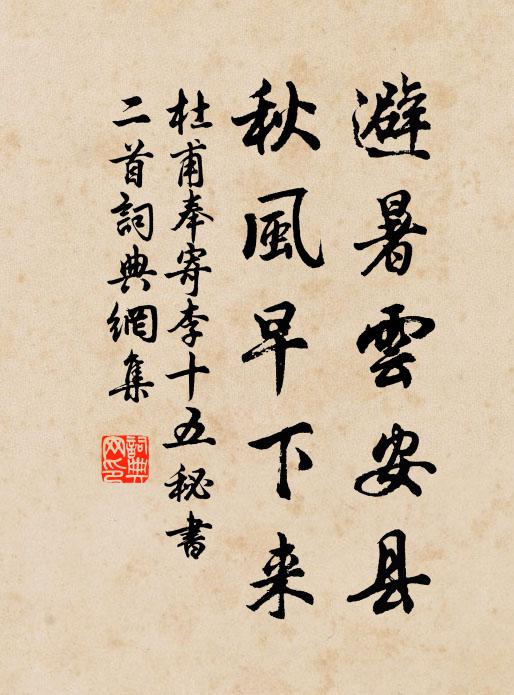 避暑雲安县
秋風早下来
杜甫奉寄李十五秘書
二首詞典網集
詞典网印